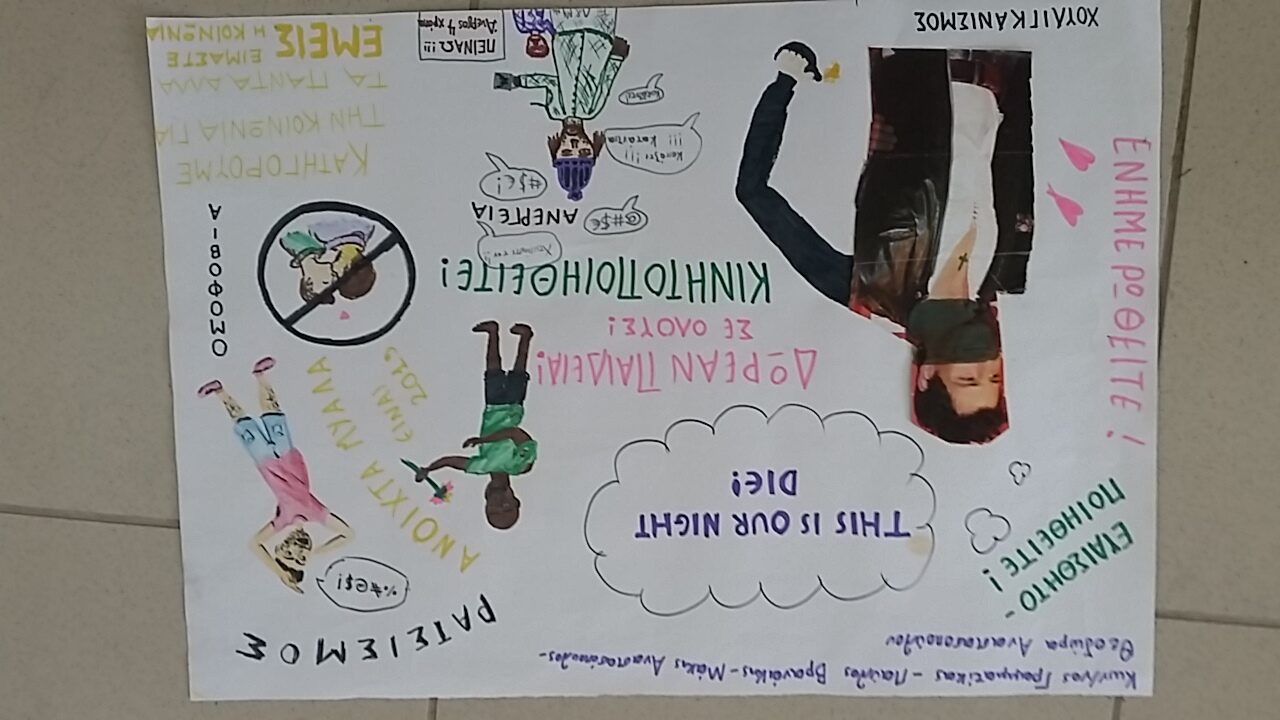 Κων/νος Γραμματίκας - Παύλος Βρανάκης - Μάκης Αναστασόπουλος -
Θεοδώρα Αναστασοπούλου
ΡΑΤΣΙΣΜΟΣ
%#@$!
ΕΥΑΙΣΘΗΤΟ-
ΠΟΙΗΘΕΙΤΕ!
THIS IS OUR NIGHT
DIE!
ΑΝΟΙΧΤΑ ΜΥΑΛΑ
ΕΙΝΑΙ
2019
ΕΝΗΜΕΡΩΘΕΙΤΕ!
ΔΩΡΕΑΝ ΠΑΙΔΕΙΑ!
ΣΕ ΟΛΟΥΣ!
ΚΙΝΗΤΟΠΟΙΗΘΕΙΤΕ!
ΟΜΟΦΟΒΙΑ
ΑΝΕΡΓΕΙΑ
@#$€
#$€!
ΚΑΤΗΓΟΡΟΥΜΕ
ΤΗΝ ΚΟΙΝΩΝΙΑ ΓΙΑ
ΤΑ ΠΑΝΤΑ ΑΛΛΑ
ΕΜΕΙΣ ΕΙΜΑΣΤΕ
Η ΚΟΙΝΩΝΙΑ
ΠΕΙΝΑΩ!!!
Άνεργος 4 χρόνια
ΧΟΥΛΙΓΚΑΝΙΣΜΟΣ